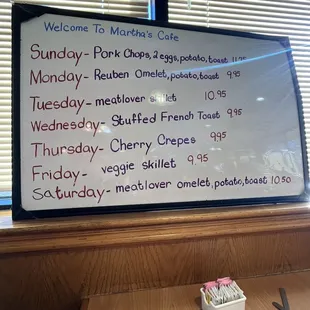 Welcome To Martha's Cafe
Sunday- Pork Chops, 2 eggs, potato, toast 11.95
Monday- Reuben Omelet, potato, toast 9.95
Tuesday- meatlover skillet 10.95
Wednesday- Stuffed French Toast 9.95
Thursday- Cherry Crepes 9.95
Friday- veggie skillet 9.95
Saturday- meatlover omelet, potato, toast 10.50